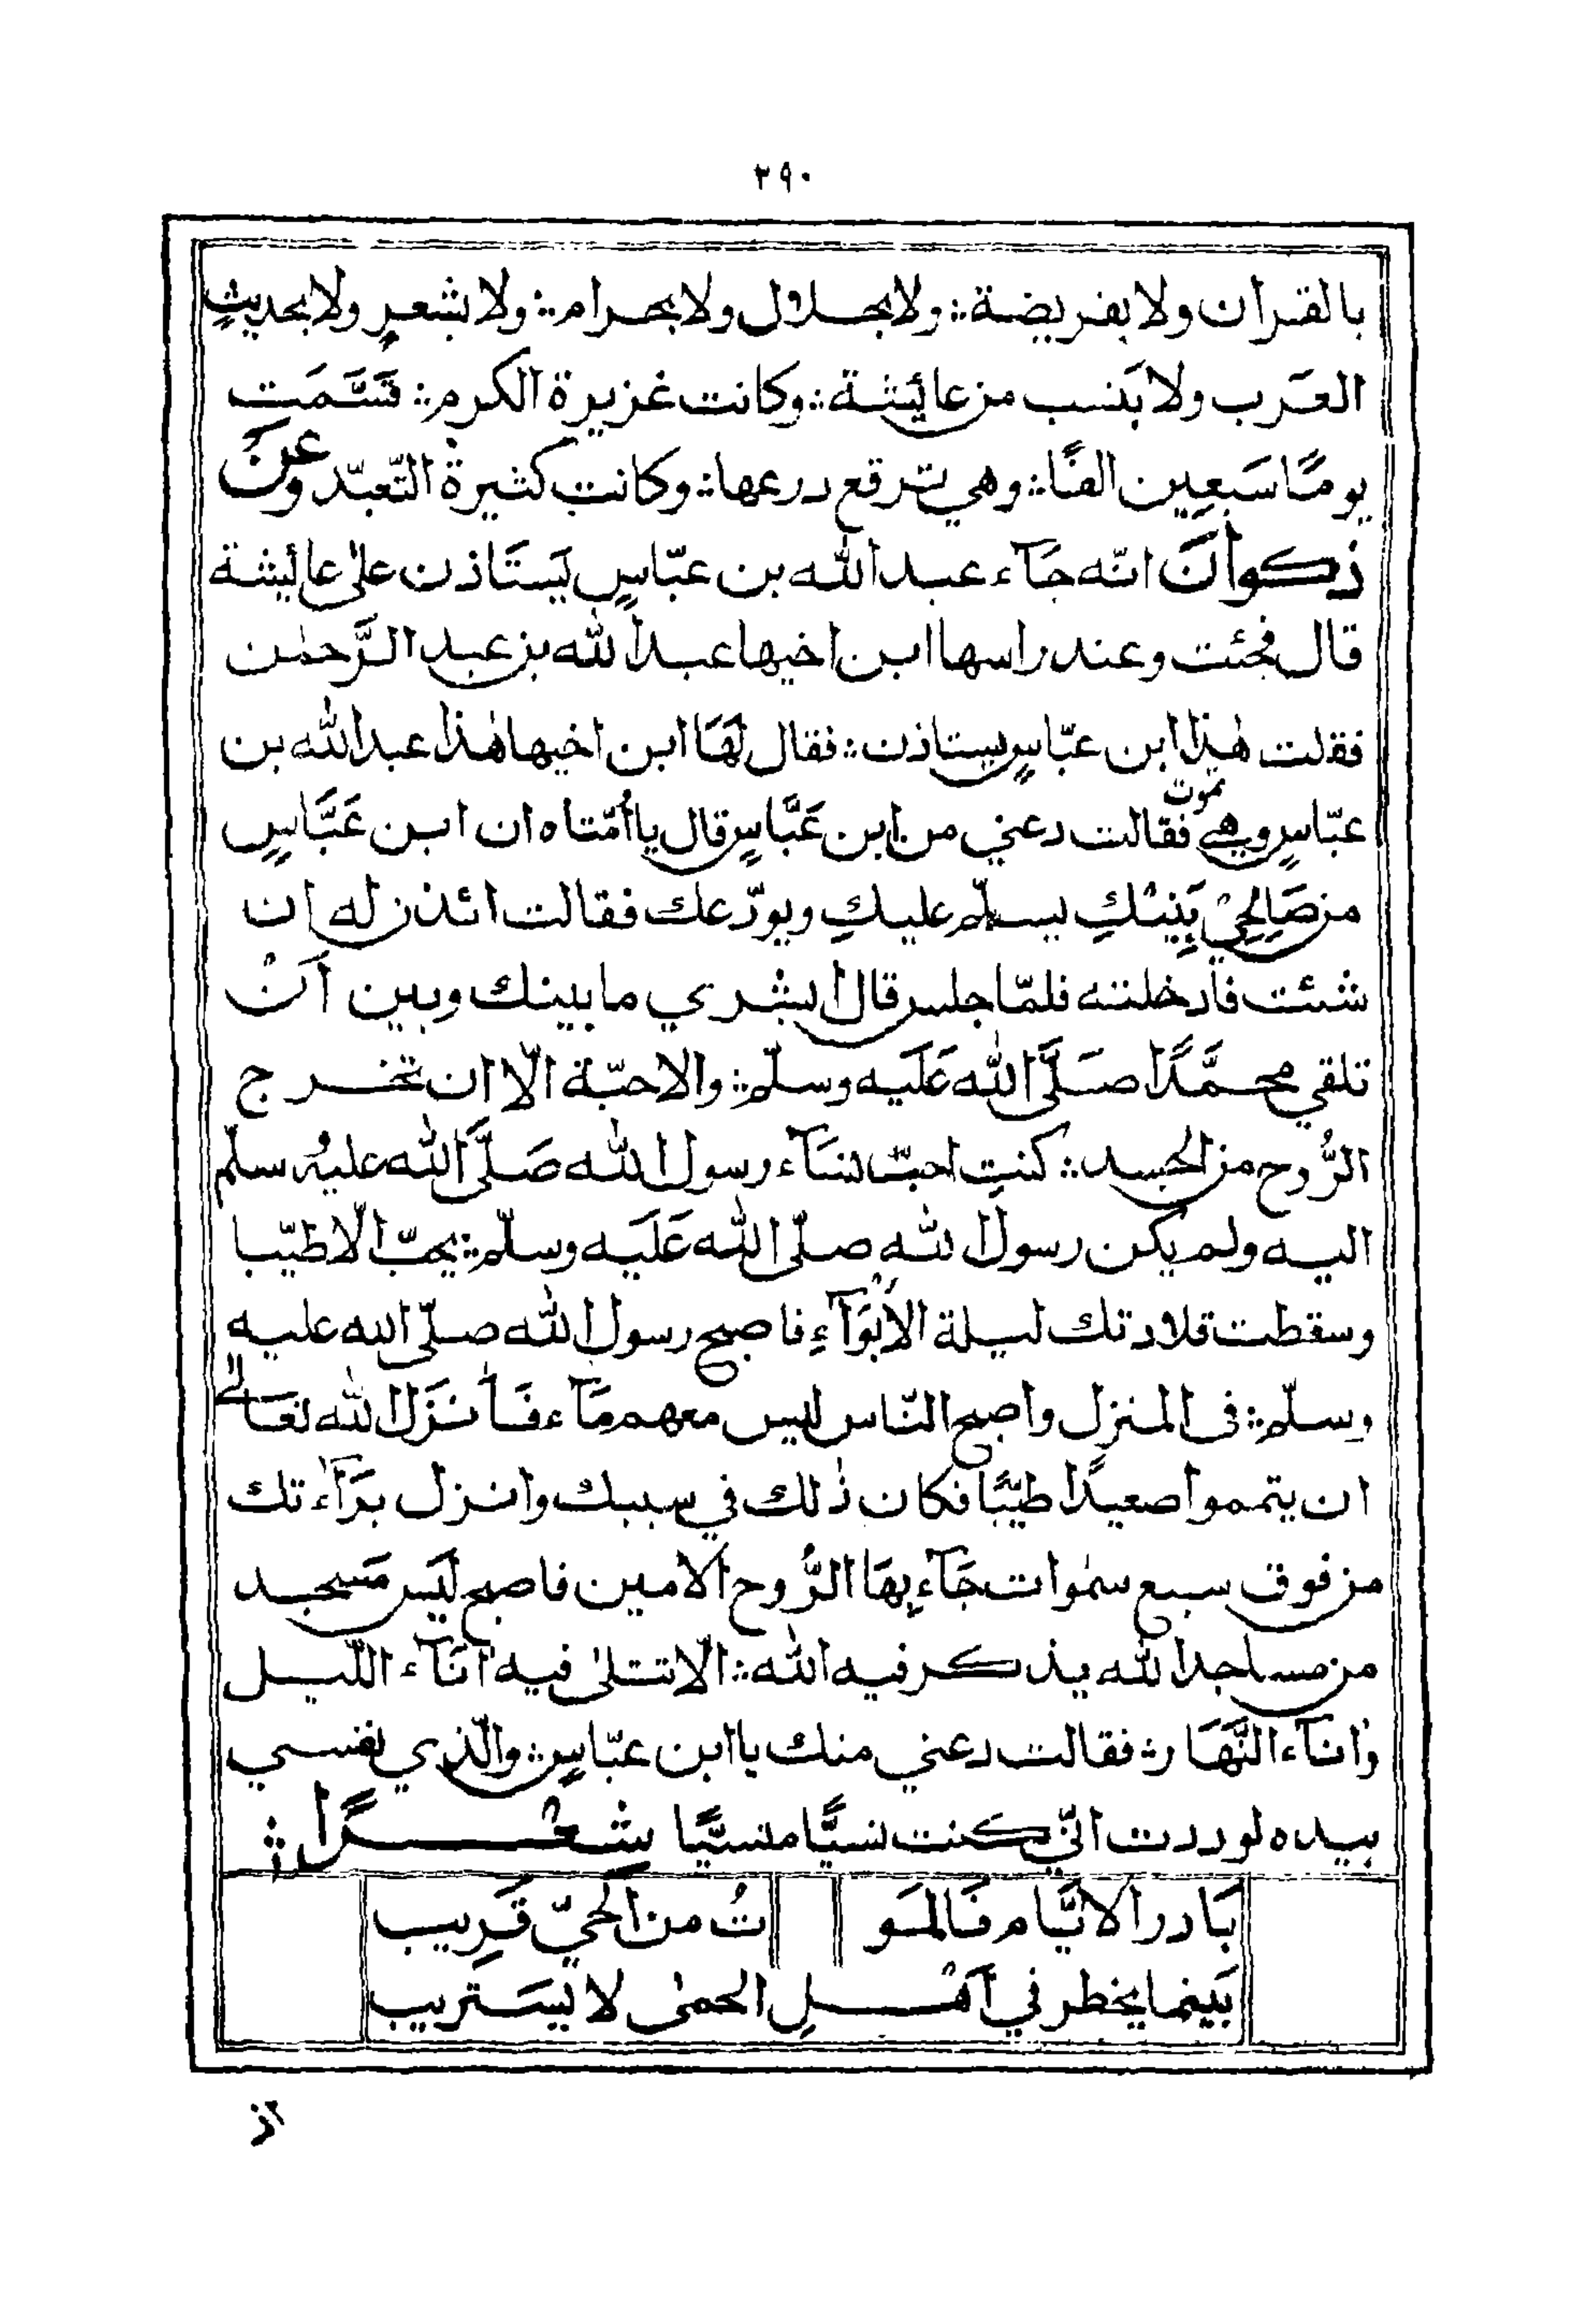 ٣٩٠
بالقرآن ولا بفريضة ؞ ولا بحلال ولا بحرام ؞ ولا بشعرٍ ولا بحديثِ
العَرب ولا بَنسب من عائِشة ؞ وكانت غزيرة الكرم ؞ قَسَّمَت
يومًا سَبعِين الفًا ؞ وهي ترقع درعها ؞ وكانت كثيرةْ التّعبّد وعن
ذكوانَ انّه جَآء عبد الله بن عبّاسٍ يَستَاذن على عائِشة
قال فجئت وعند راسها ابن اخيها عبد الله بن عبد الرَّحمٰن
فقلت هٰذا ابن عبّاسٍ يستاذن ؞ فقال لهَا ابن اخيها هٰذا عبد الله بن
عبّاسٍ وهي تموت فقالت دعني من ابن عَبَّاسٍ قال يا أُمّتاه ان ابن عَبَّاسٍ
من صَالِحِيْ بَنِيْكِ يسلّم عليكِ ويودّعك فقالت ائذن له ان
شئت فادخلته فلمّا جلس قال ابشري ما بينك وبين اَنْ
تلقي محمَّدًا صَلَّى الله عَلَيه وسلّم ؞ والاحبّة الّا ان تخرج
الرُّوح من الجسد ؞ كنتِ احبّ نسَآء رسول الله صَلَّى الله عليْه سلّم
اليه ولم يكن رسول الله صلّى الله عَلَيه وسلّم ؞ يحبّ الّا طيّبا
وسقطت قلادتك ليلة الاَبْوَآءِ فاصبح رسول الله صلّى الله عليه
وسلّم ؞ في المنزل واصبح النّاس ليس معهم مَآء فَأَنزَل الله تعَالٰى
ان يتمموا صعيدًا طيّبًا فكان ذٰلك في سببك وانزل برَآءَتك
من فوق سبع سمٰوات جَآء بِهَا الرُّوح الامين فاصبح لَيس مَسجد
من مساجد الله يذكر فيه الله ؞ الّا تتلى فيه آنَآء اللّيل
وَانَآء النَّهَار ؞ فقالت دعني منك يا ابن عبّاسٍ ؞ والّذي نفسي
بيده لوددت انّي كنت نسيًّا منسيًّا شعْرًا ؞
بَادر الايَّام فَالمَو تُ من الحيّ قَرِيب
بَينما يخطر في اَهْلِ الحمٰى لا يَستريب
اذ